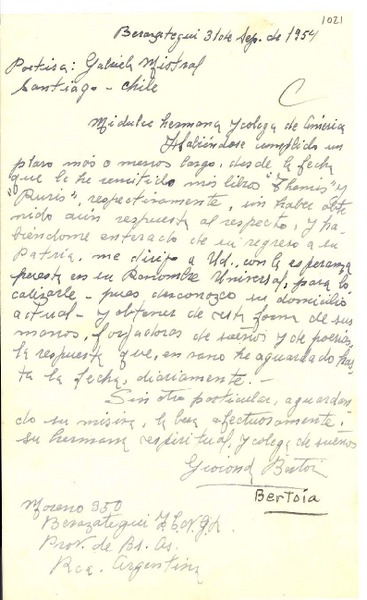 1021
Berazategui 31 de Sep. de 1954
Poetisa: Gabriela Mistral
Santiago - Chile
Mi dulce hermana y colega de América
Habiéndose cumplido un
plazo más o menos largo, desde la fecha
que le he remitido mis libros "Thamis" y
"Ruris", respectivamente, sin haber obte
nido aún respuesta al respecto, y ha-
biéndome enterado de su regreso a su
Patria, me dirijo a Ud., con la esperanza
puesta en su Renombre Universal, para lo
calizarle - pues desconozco su domicilio
actual - y obtener de esta forma de sus
manos, forjadoras de sueños y de poesías,
la respuesta que, en vano he aguardado has
ta la fecha, diariamente. -
Sin otro particular, aguardan
do su misiva, la besa afectuosamente:
su hermana espiritual, y colega de sueños
Bertoia
Bertoia
Moreno 950
Berazategui
Prov. de Bs. As.
Rca. Argentina